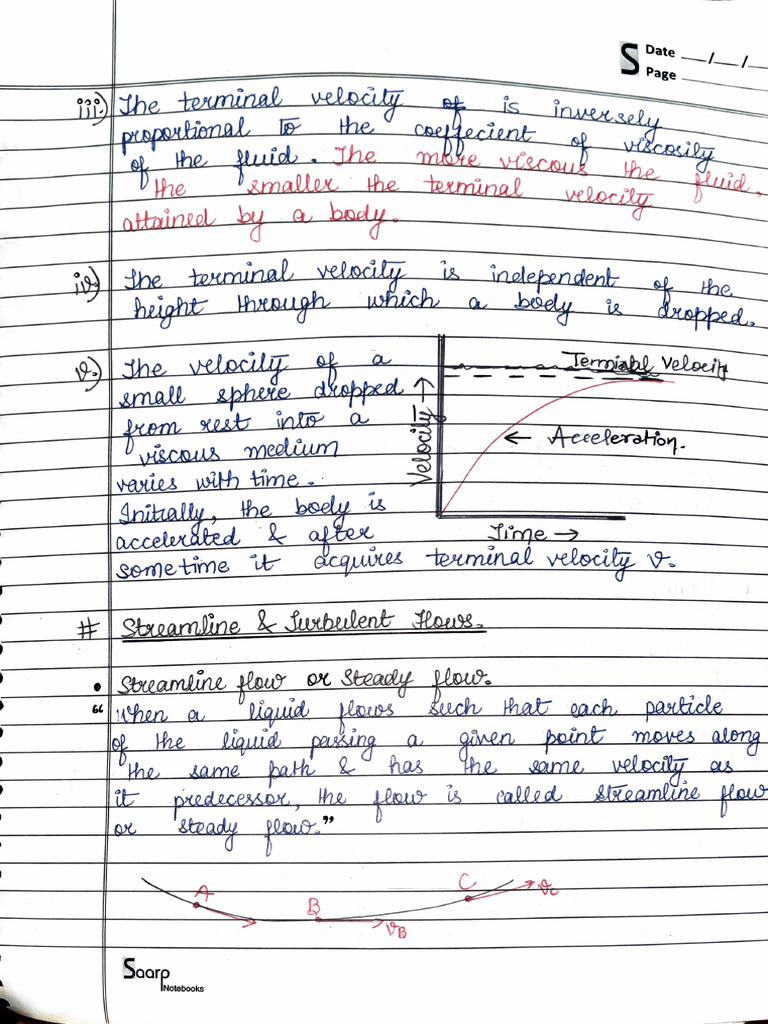 S Date __/__/__
Page
iii) The terminal velocity of is inversely
proportional to the coeffecient of viscosity
of the fluid. The more viscous the fluid,
the smaller the terminal velocity
attained by a body.
iv) The terminal velocity is independent of the
height through which a body is dropped.
v.) The velocity of a
small sphere dropped
from rest into a
viscous medium
varies with time.
Initially, the body is
accelerated & after
sometime it acquires terminal velocity v.
Velocity →
Velocity
← Acceleration.
Time →
# Streamline & Turbulent Flows.
• Streamline flow or Steady flow.
“ When a liquid flows such that each particle
of the liquid passing a given point moves along
the same path & has the same velocity as
it predecessor, the flow is called streamline flow
or steady flow.”
A B C
vB vc
Saarp
Notebooks